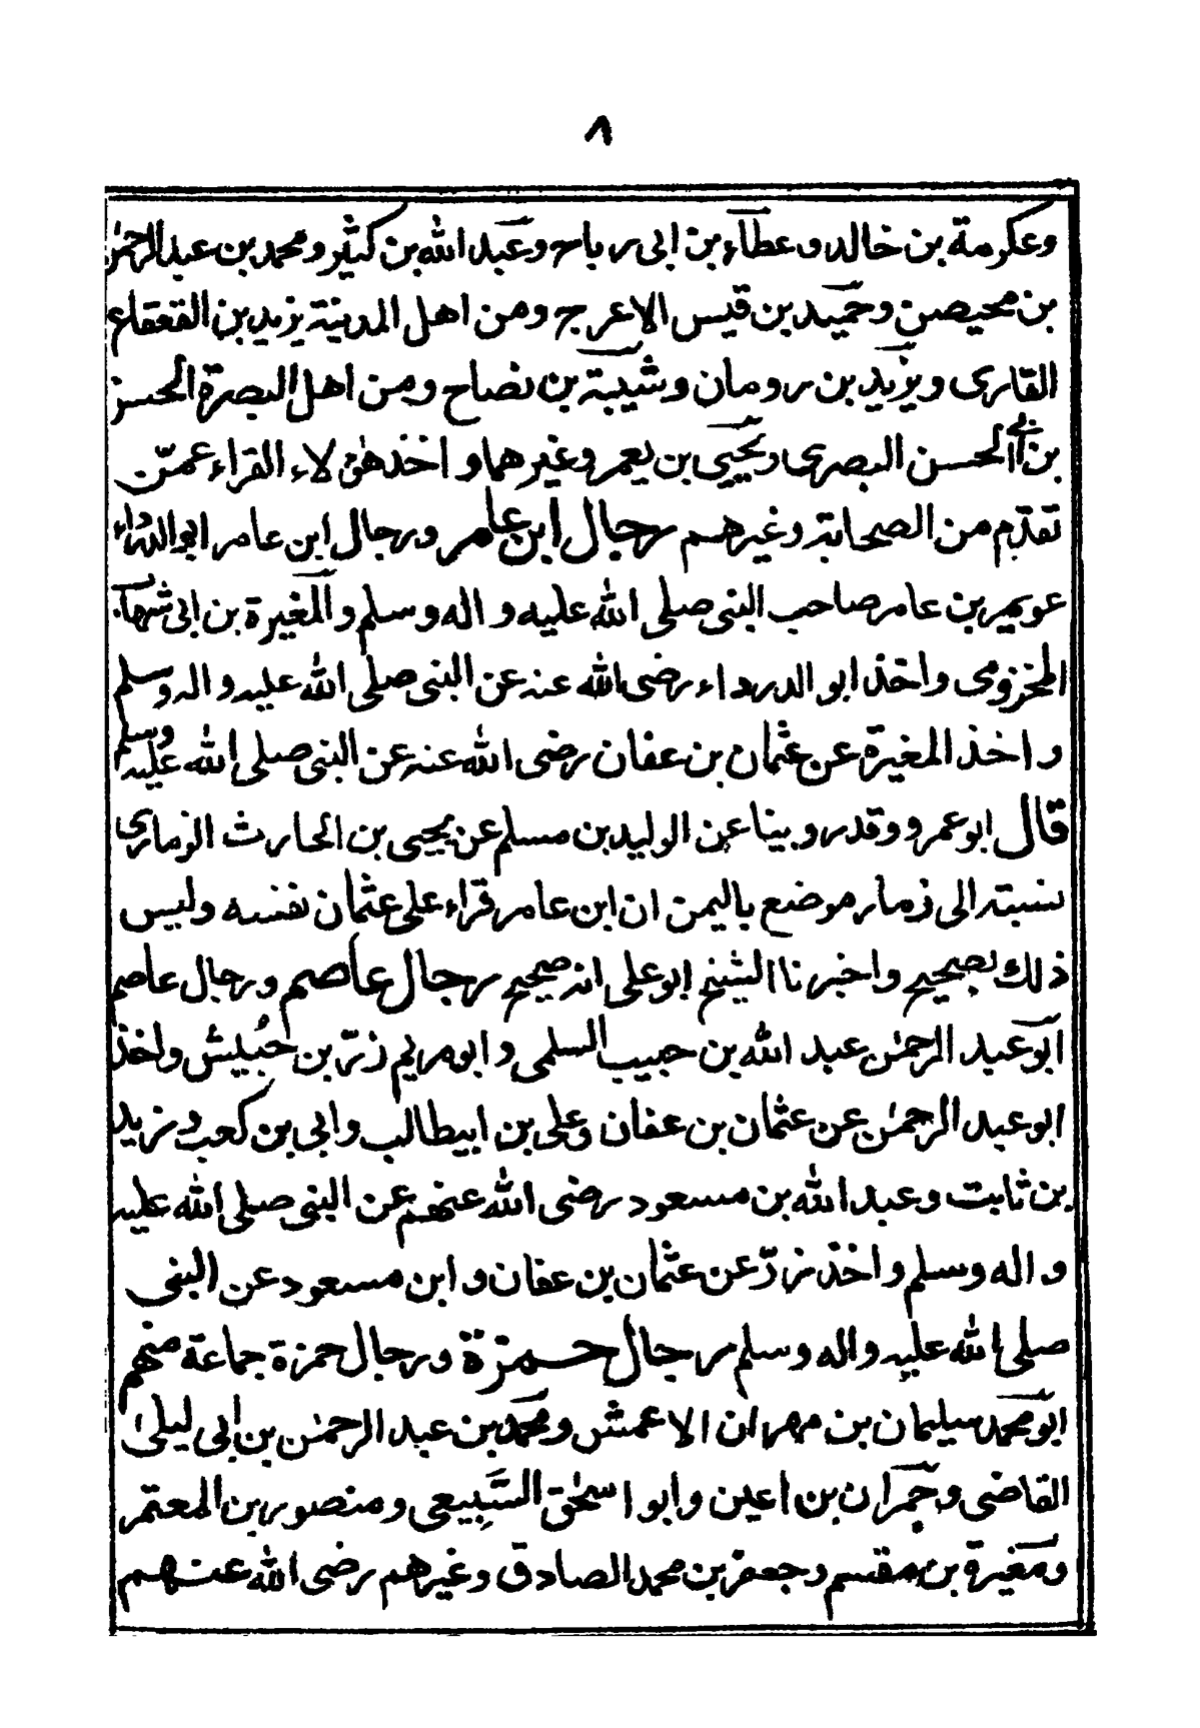 ٨
وعكرمة بن خالد وعطاء بن ابى رباح وعبد الله بن كثير ومحمد بن عبد الرحمٰن
بن محيصن وحميد بن قيس الاعرج ومن اهل المدينة يزيد بن القعقاع
القارى ويزيد بن رومان وشيبة بن نصاح ومن اهل البصرة الحسن
بن ابى الحسن البصرى ويحيى بن يعمر وغيرهما واخذ هٰؤلاء القراء عمّن
تقدّم من الصحابة وغيرهم رجال ابن عامر ورجال ابن عامر ابو الدرداء
عويمر بن عامر صاحب النبى صلى الله عليه واله وسلم والمغيرة بن ابى شهاب
المخزومى واخذ ابو الدرداء رضى الله عنه عن النبى صلى الله عليه واله وسلم
واخذ المغيرة عن عثمان بن عفان رضى الله عنه عن النبى صلى الله عليه وسلم
قال ابو عمرو وقد روينا عن الوليد بن مسلم عن يحيى بن الحارث الزمارى
نسبته الى زمار موضع باليمن ان ابن عامر قراء على عثمان نفسه وليس
ذلك بصحيح واخبرنا الشيخ ابو على انه صحيح رجال عاصم ورجال عاصم
ابو عبد الرحمٰن عبد الله بن حبيب السلمى وابو مريم زرّ بن حُبيش واخذ
ابو عبد الرحمٰن عن عثمان بن عفان وعلى بن ابيطالب وابى بن كعب وزيد
بن ثابت وعبد الله بن مسعود رضى الله عنهم عن النبى صلى الله عليه
واله وسلم واخذ زرّ عن عثمان بن عفان وابن مسعود عن النبى
صلى الله عليه واله وسلم رجال حمزة ورجال حمزة جماعة منهم
ابو محمد سليمان بن مهران الاعمش ومحمد بن عبد الرحمٰن بن ابى ليلىٰ
القاضى وحمران بن اعين وابو اسحٰق السَّبِيعى ومنصور بن المعتمر
ومغيرة بن مقسم وجعفر بن محمد الصادق وغيرهم رضى الله عنهم